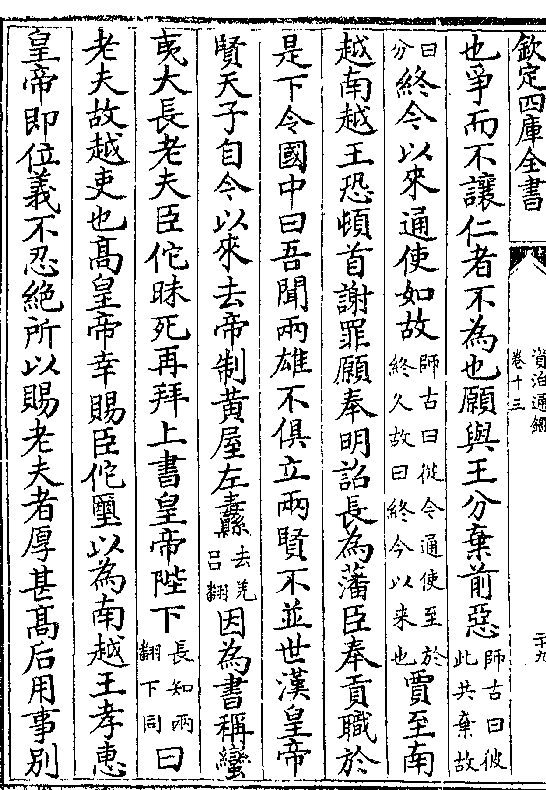 欽定四庫全書
資治通鑑
卷十三
二十九
也爭而不讓仁者不為也願與王分棄前惡師古曰彼此共棄故
曰分終今以來通使如故師古曰從今通使至於終久故曰終今以来也賈至南
越南越王恐頓首謝罪願奉明詔長為藩臣奉貢職於
是下令國中曰吾聞兩雄不俱立兩賢不並世漢皇帝
賢天子自今以來去帝制黃屋左纛去羌吕翻因為書稱蠻
夷大長老夫臣佗昧死再拜上書皇帝陛下長知兩翻下同曰
老夫故越吏也高皇帝幸賜臣佗璽以為南越王孝惠
皇帝即位義不忍絶所以賜老夫者厚甚高后用事别